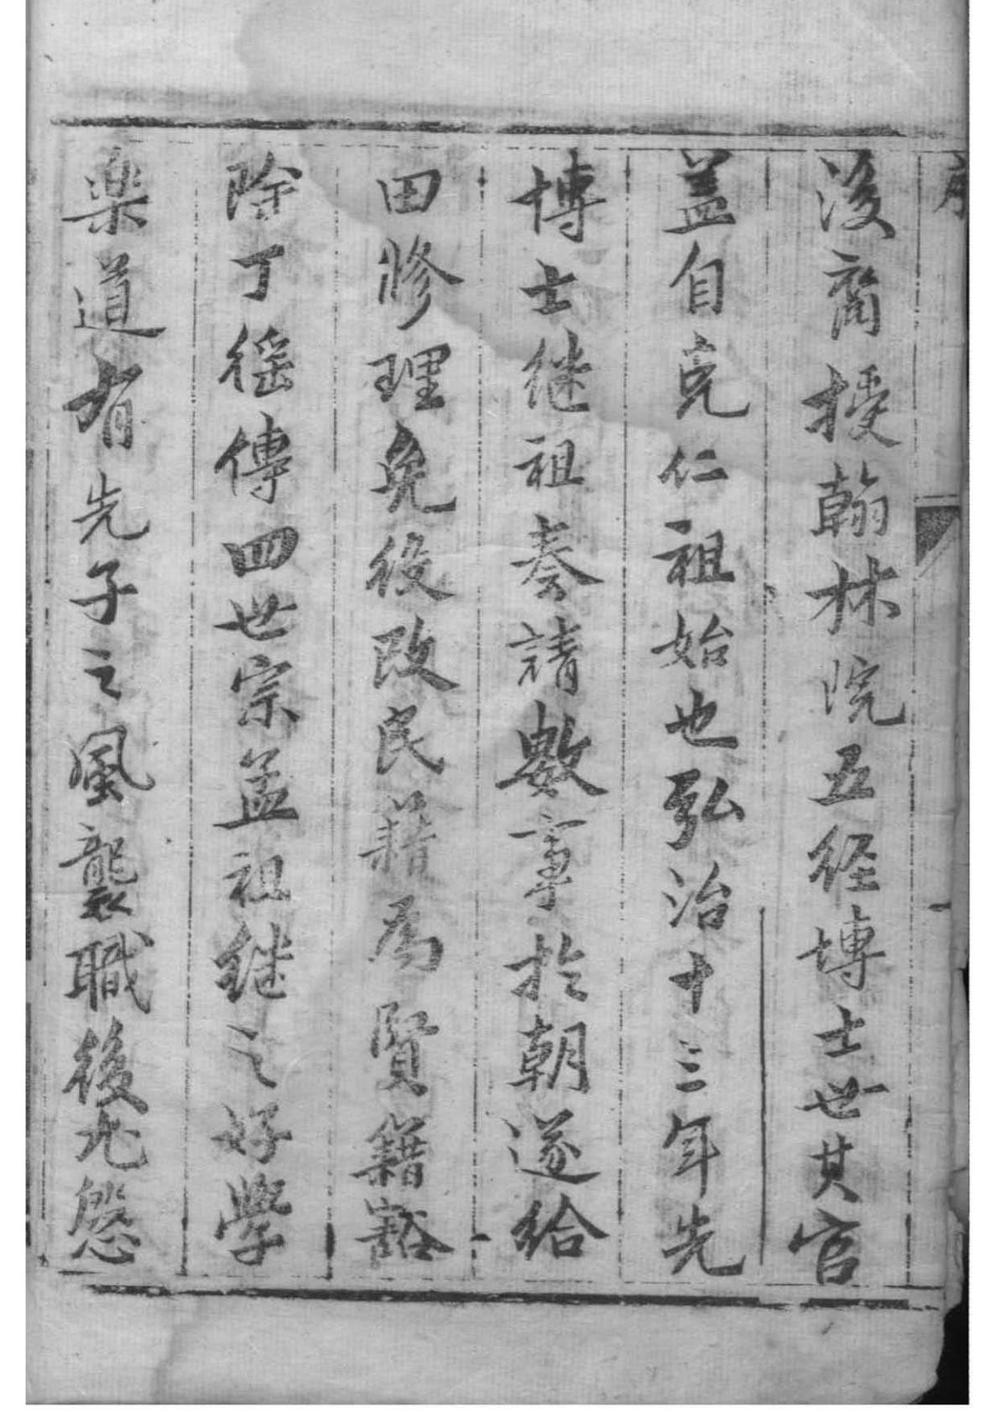 序
後裔授翰林院五経博士世其官
盖自克仁祖始也弘治十三年先
博士继祖奏請數事扵朝遂給
田修理免役改民籍為賢籍豁
除丁徭傳四世宗孟祖继之好學
楽道有先子之風襲職後尤慇